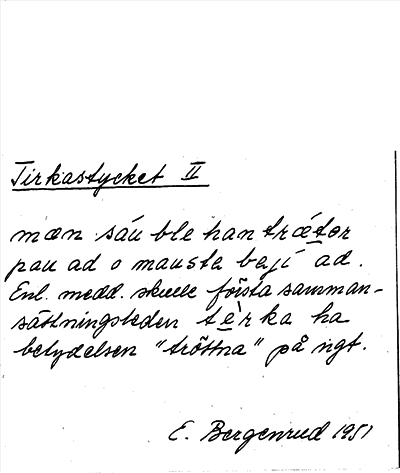 Tirkastycket II
mæn sáu ble han træ̀tor
pau ad o mausta bají ad.
Enl. medd. skulle första samman-
sättningsleden tèrka ha
betydelsen "tröttna" på ngt.
E. Bergenrud 1951